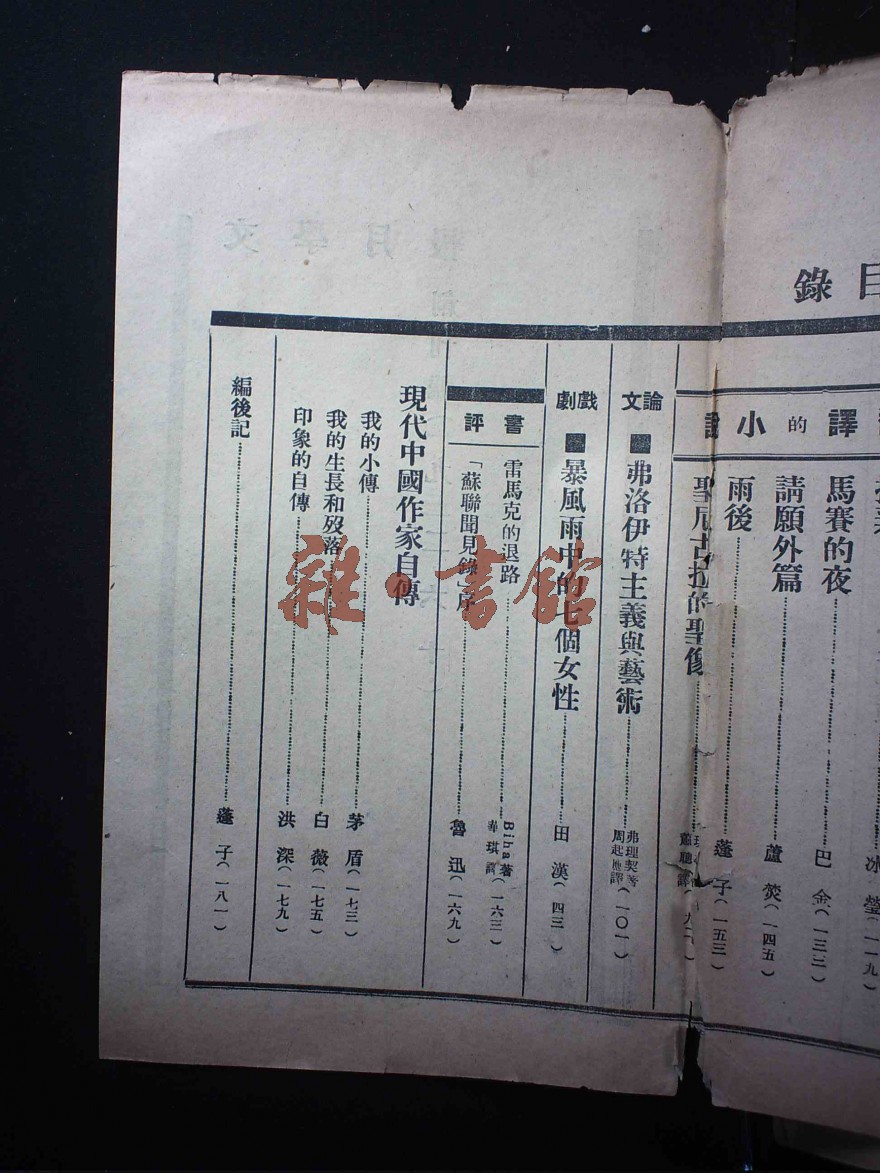 目錄
譯的小說
冰瑩(一一九)
馬賽的夜 巴金(一三二)
請願外篇 蘆焚(一四五)
雨後 蓬子(一五三)
聖尼古拉的聖像
論文
弗洛伊特主義與藝術 弗理契著 周起應譯(一〇一)
戲劇
暴風雨中的七個女性 田漢(四三)
書評
雷馬克的退路 Biha著 華琪譯(一六三)
「蘇聯聞見錄」序 魯迅(一六九)
現代中國作家自傳
我的小傳 茅盾(一七三)
我的生長和歿落 白薇(一七五)
印象的自傳 洪深(一七九)
編後記 蓬子(一八一)
雜·書館
文學月報